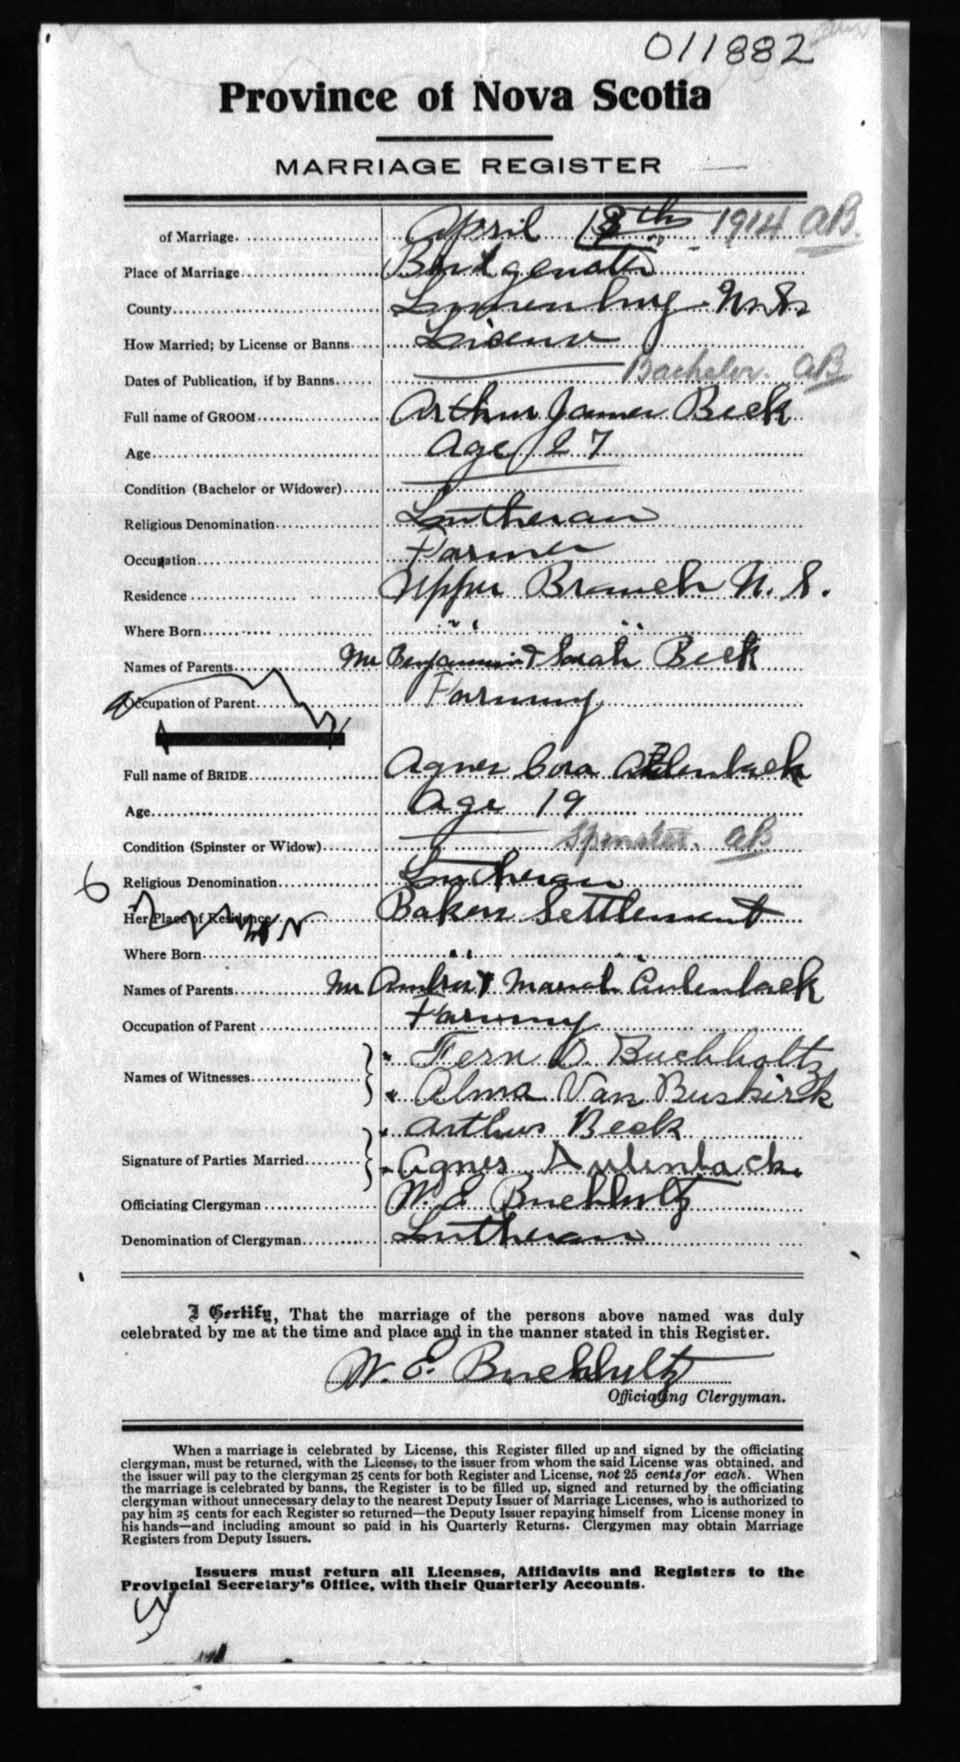 011882
Province of Nova Scotia
MARRIAGE REGISTER
of Marriage. April 1914 AB.
Place of Marriage
County Lunenburg N.S.
How Married; by License or Banns License
Bachelor. AB
Dates of Publication, if by Banns
Full name of GROOM Arthur James Beck
Age Age 27
Condition (Bachelor or Widower)
Religious Denomination Lutheran
Occupation Farmer
Residence Upper Branch N. S.
Where Born " "
Names of Parents Mr Benjamin & Sarah Beck
Occupation of Parent Farming
Full name of BRIDE Agnes Cora
Age Age 19
Condition (Spinster or Widow) Spinster. AB
6
Religious Denomination Lutheran
Her Place of Residence Bakers Settlement
Where Born " "
Names of Parents Mr
Occupation of Parent Farming
Names of Witnesses " Fern D. Buchholtz
" Alma Van Buskirk
" Arthur Beck
Signature of Parties Married " Agnes Aulenback.
Officiating Clergyman W. E. Buchholtz
Denomination of Clergyman Lutheran
I Certify, That the marriage of the persons above named was duly
celebrated by me at the time and place and in the manner stated in this Register.
W. E. Buchholtz
Officiating Clergyman.
When a marriage is celebrated by License, this Register filled up and signed by the officiating
clergyman, must be returned, with the License, to the issuer from whom the said License was obtained, and
the issuer will pay to the clergyman 25 cents for both Register and License, not 25 cents for each. When
the marriage is celebrated by banns, the Register is to be filled up, signed and returned by the officiating
clergyman without unnecessary delay to the nearest Deputy Issuer of Marriage Licenses, who is authorized to
pay him 25 cents for each Register so returned—the Deputy Issuer repaying himself from License money in
his hands—and including amount so paid in his Quarterly Returns. Clergymen may obtain Marriage
Registers from Deputy Issuers.
Issuers must return all Licenses, Affidavits and Registers to the
Provincial Secretary's Office, with their Quarterly Accounts.